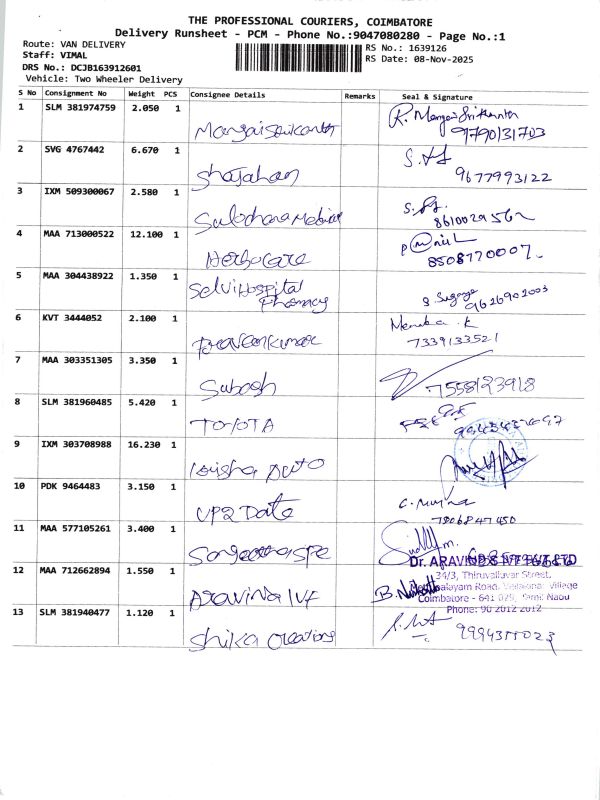 THE PROFESSIONAL COURIERS, COIMBATORE
Delivery Runsheet - PCM - Phone No.:9047080280 - Page No.:1
Route: VAN DELIVERY
Staff: VIMAL
DRS No.: DCJB163912601
Vehicle: Two Wheeler Delivery
RS No.: 1639126
RS Date: 08-Nov-2025
S No Consignment No Weight PCS Consignee Details Remarks Seal & Signature
1 SLM 381974759 2.050 1 Mangaisrikanth R. Mangai Srikanth
9790131703
2 SVG 4767442 6.670 1 Shajahan
9677993122
3 IXM 509300067 2.580 1 Sulochana Medical
8610029562
4 MAA 713000522 12.100 1 Herbocare
8508770007.
5 MAA 304438922 1.350 1 Selvi Hospital
Pharmacy
S Sugaya 9626902003
6 KVT 3444052 2.100 1 Praveenkumar Menaka. K
7339133521
7 MAA 303351305 3.350 1 Subash
7558123918
8 SLM 381960485 5.420 1 TOYOTA
9 IXM 303708988 16.230 1 Auto
10 PDK 9464483 3.150 1 UP2Date
7906847450
11 MAA 577105261 3.400 1
12 MAA 712662894 1.550 1 Aravind IVF
Dr. ARAVIND'S IVF PVT LTD
34/3, Thiruvalluvar Street,
Road, Village
Coimbatore - 641 025, Tamil Nadu
Phone: 90 2012 2012
13 SLM 381940477 1.120 1 Shika Creations
9994377023